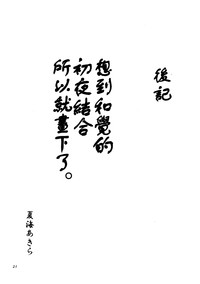 後記
想到和覺的
初夜結合
所以就畫下了。
夏海あきら